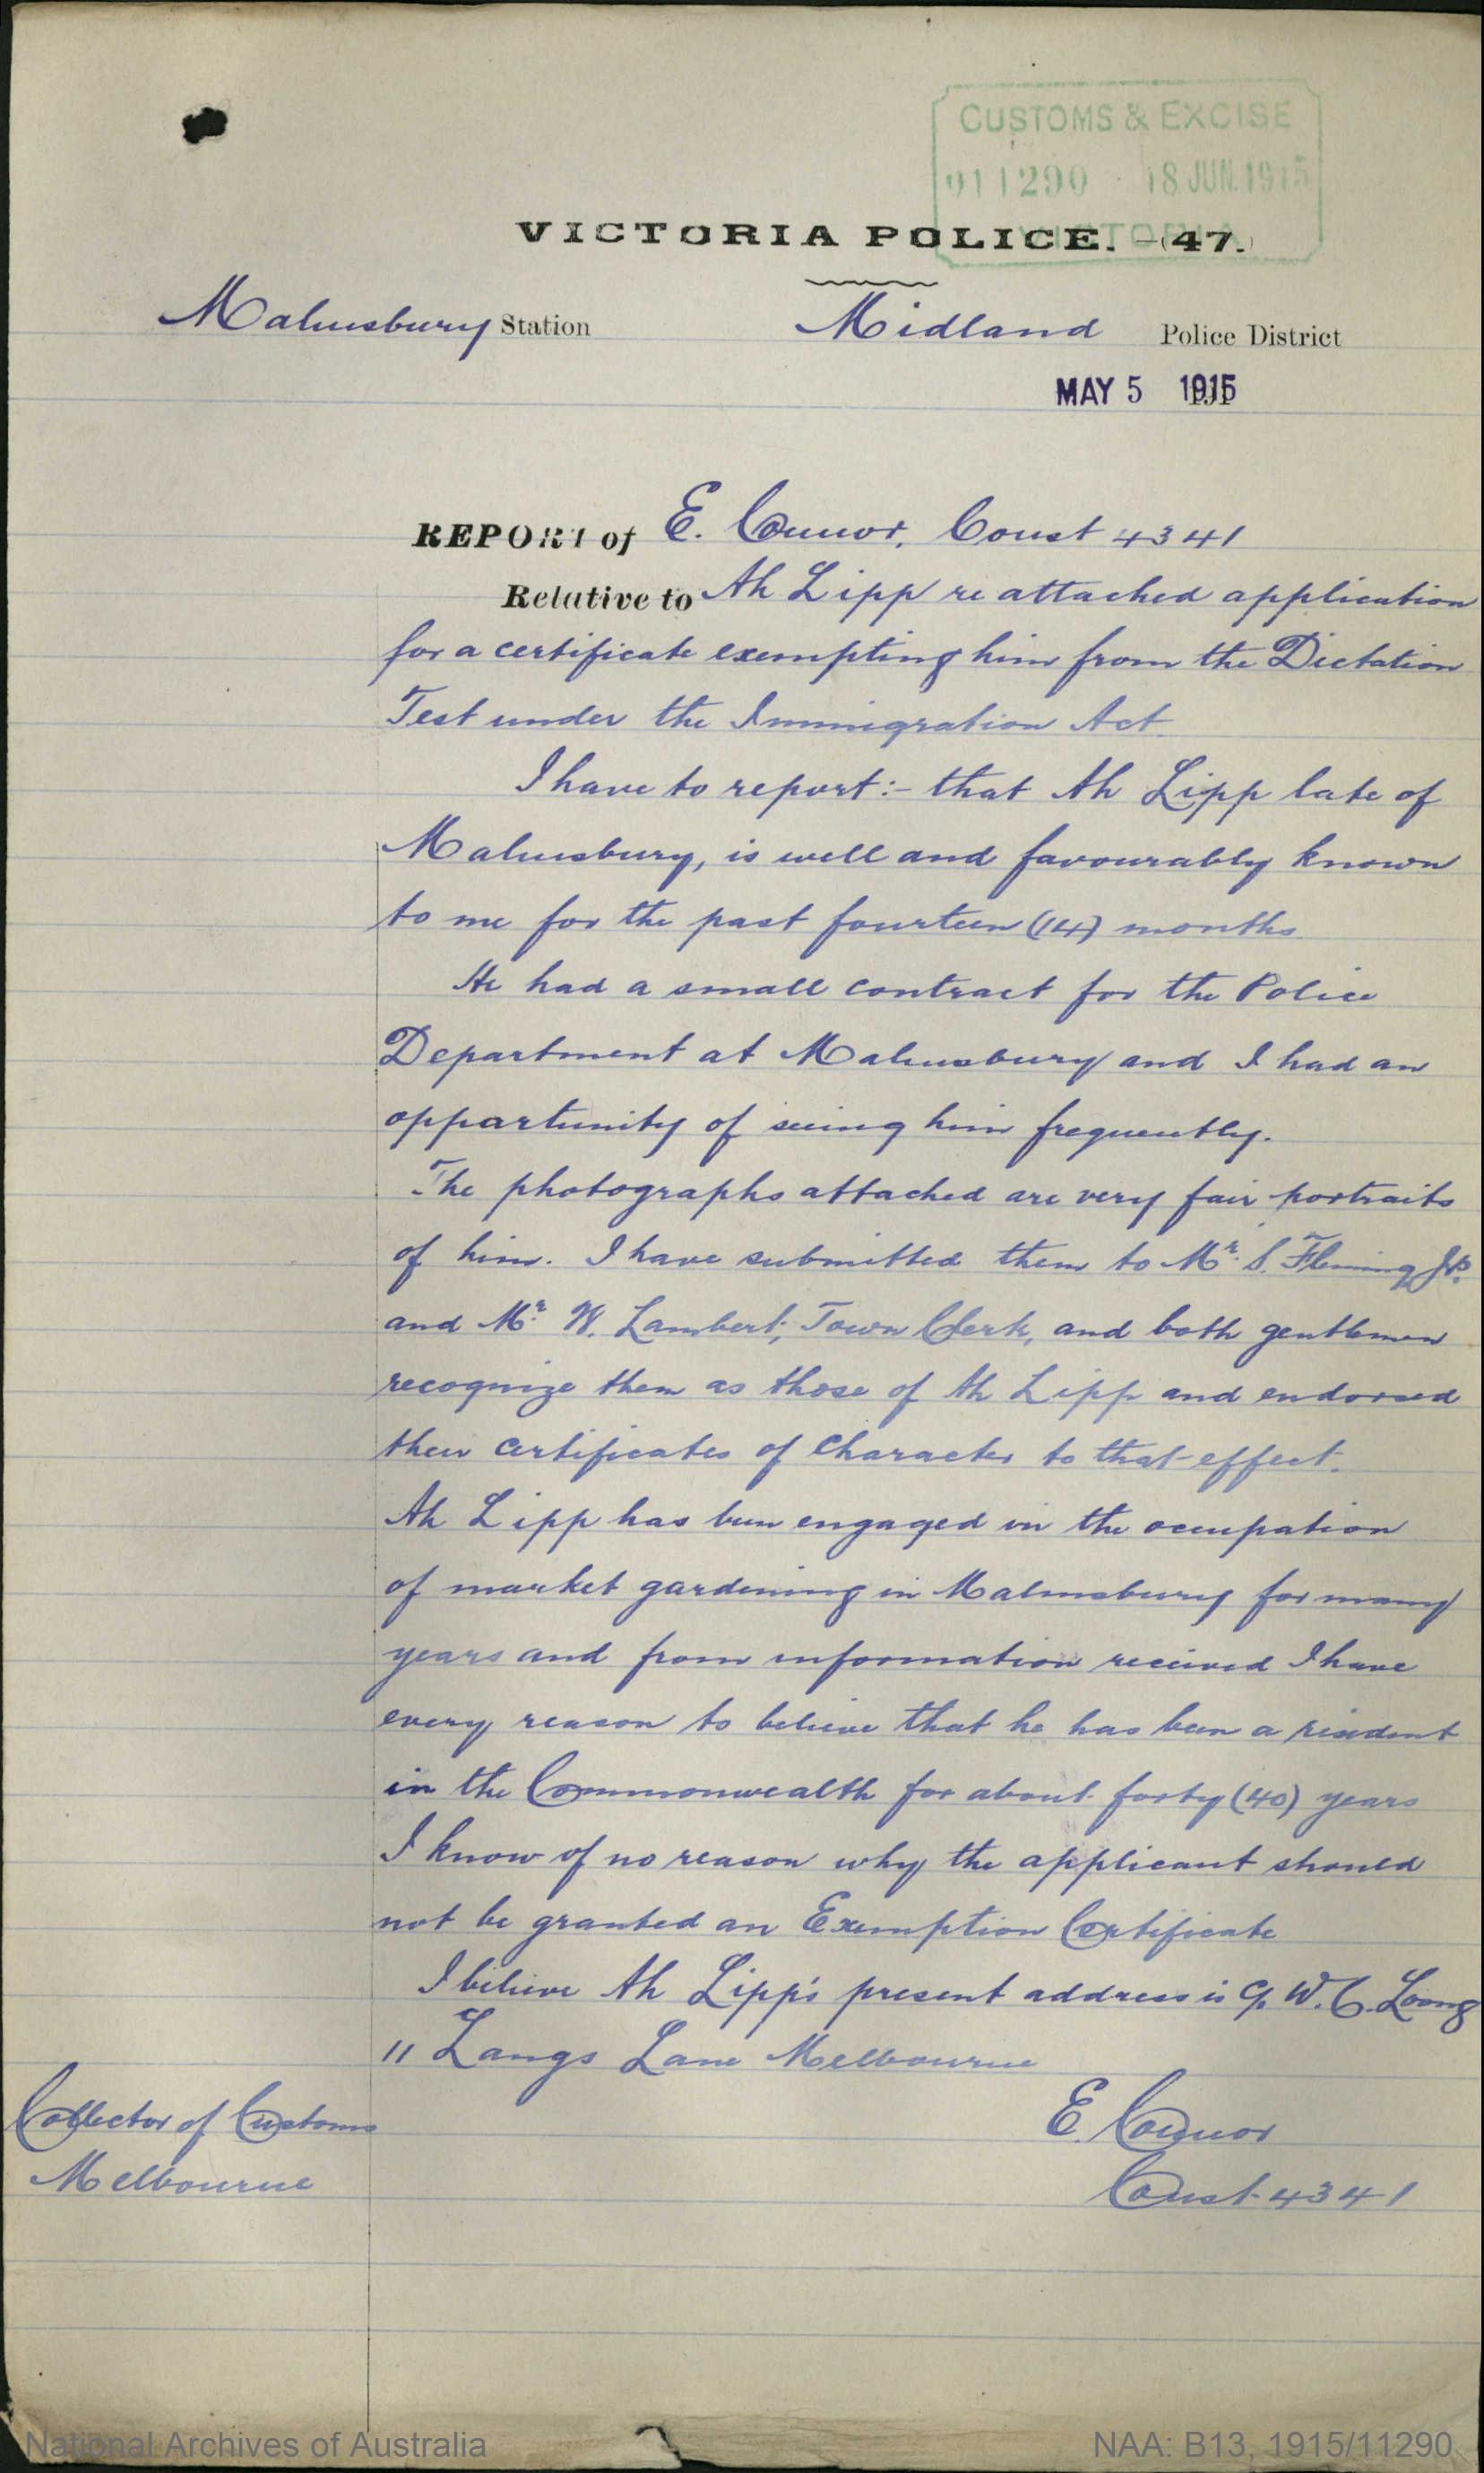 CUSTOMS & EXCISE
011290 18 JUN. 1915
VICTORIA
VICTORIA POLICE.—(47.)
Malmsbury Station Midland Police District
MAY 5 1915
REPORT of E. Connor, Const 4341
Relative to Ah Lipp re attached application
for a certificate exempting him from the Dictation
Test under the Immigration Act.
I have to report:- that Ah Lipp late of
Malmsbury, is well and favourably known
to me for the past fourteen (14) months
He had a small contract for the Police
Department at Malmsbury and I had an
opportunity of seeing him frequently.
The photographs attached are very fair portraits
of him. I have submitted them to Mr. S. Fleming J.P.
and Mr. W. Lambert, Town Clerk, and both gentlemen
recognize them as those of Ah Lipp and endorsed
their certificates of Character to that effect.
Ah Lipp has been engaged in the occupation
of market gardening in Malmsbury for many
years and from information received I have
every reason to believe that he has been a resident
in the Commonwealth for about forty (40) years
I know of no reason why the applicant should
not be granted an Exemption Certificate
I believe Ah Lipp's present address is C/o W. C. Loong
11 Langs Lane Melbourne
E. Connor
Const. 4341
Collector of Customs
Melbourne
National Archives of Australia
NAA: B13, 1915/11290